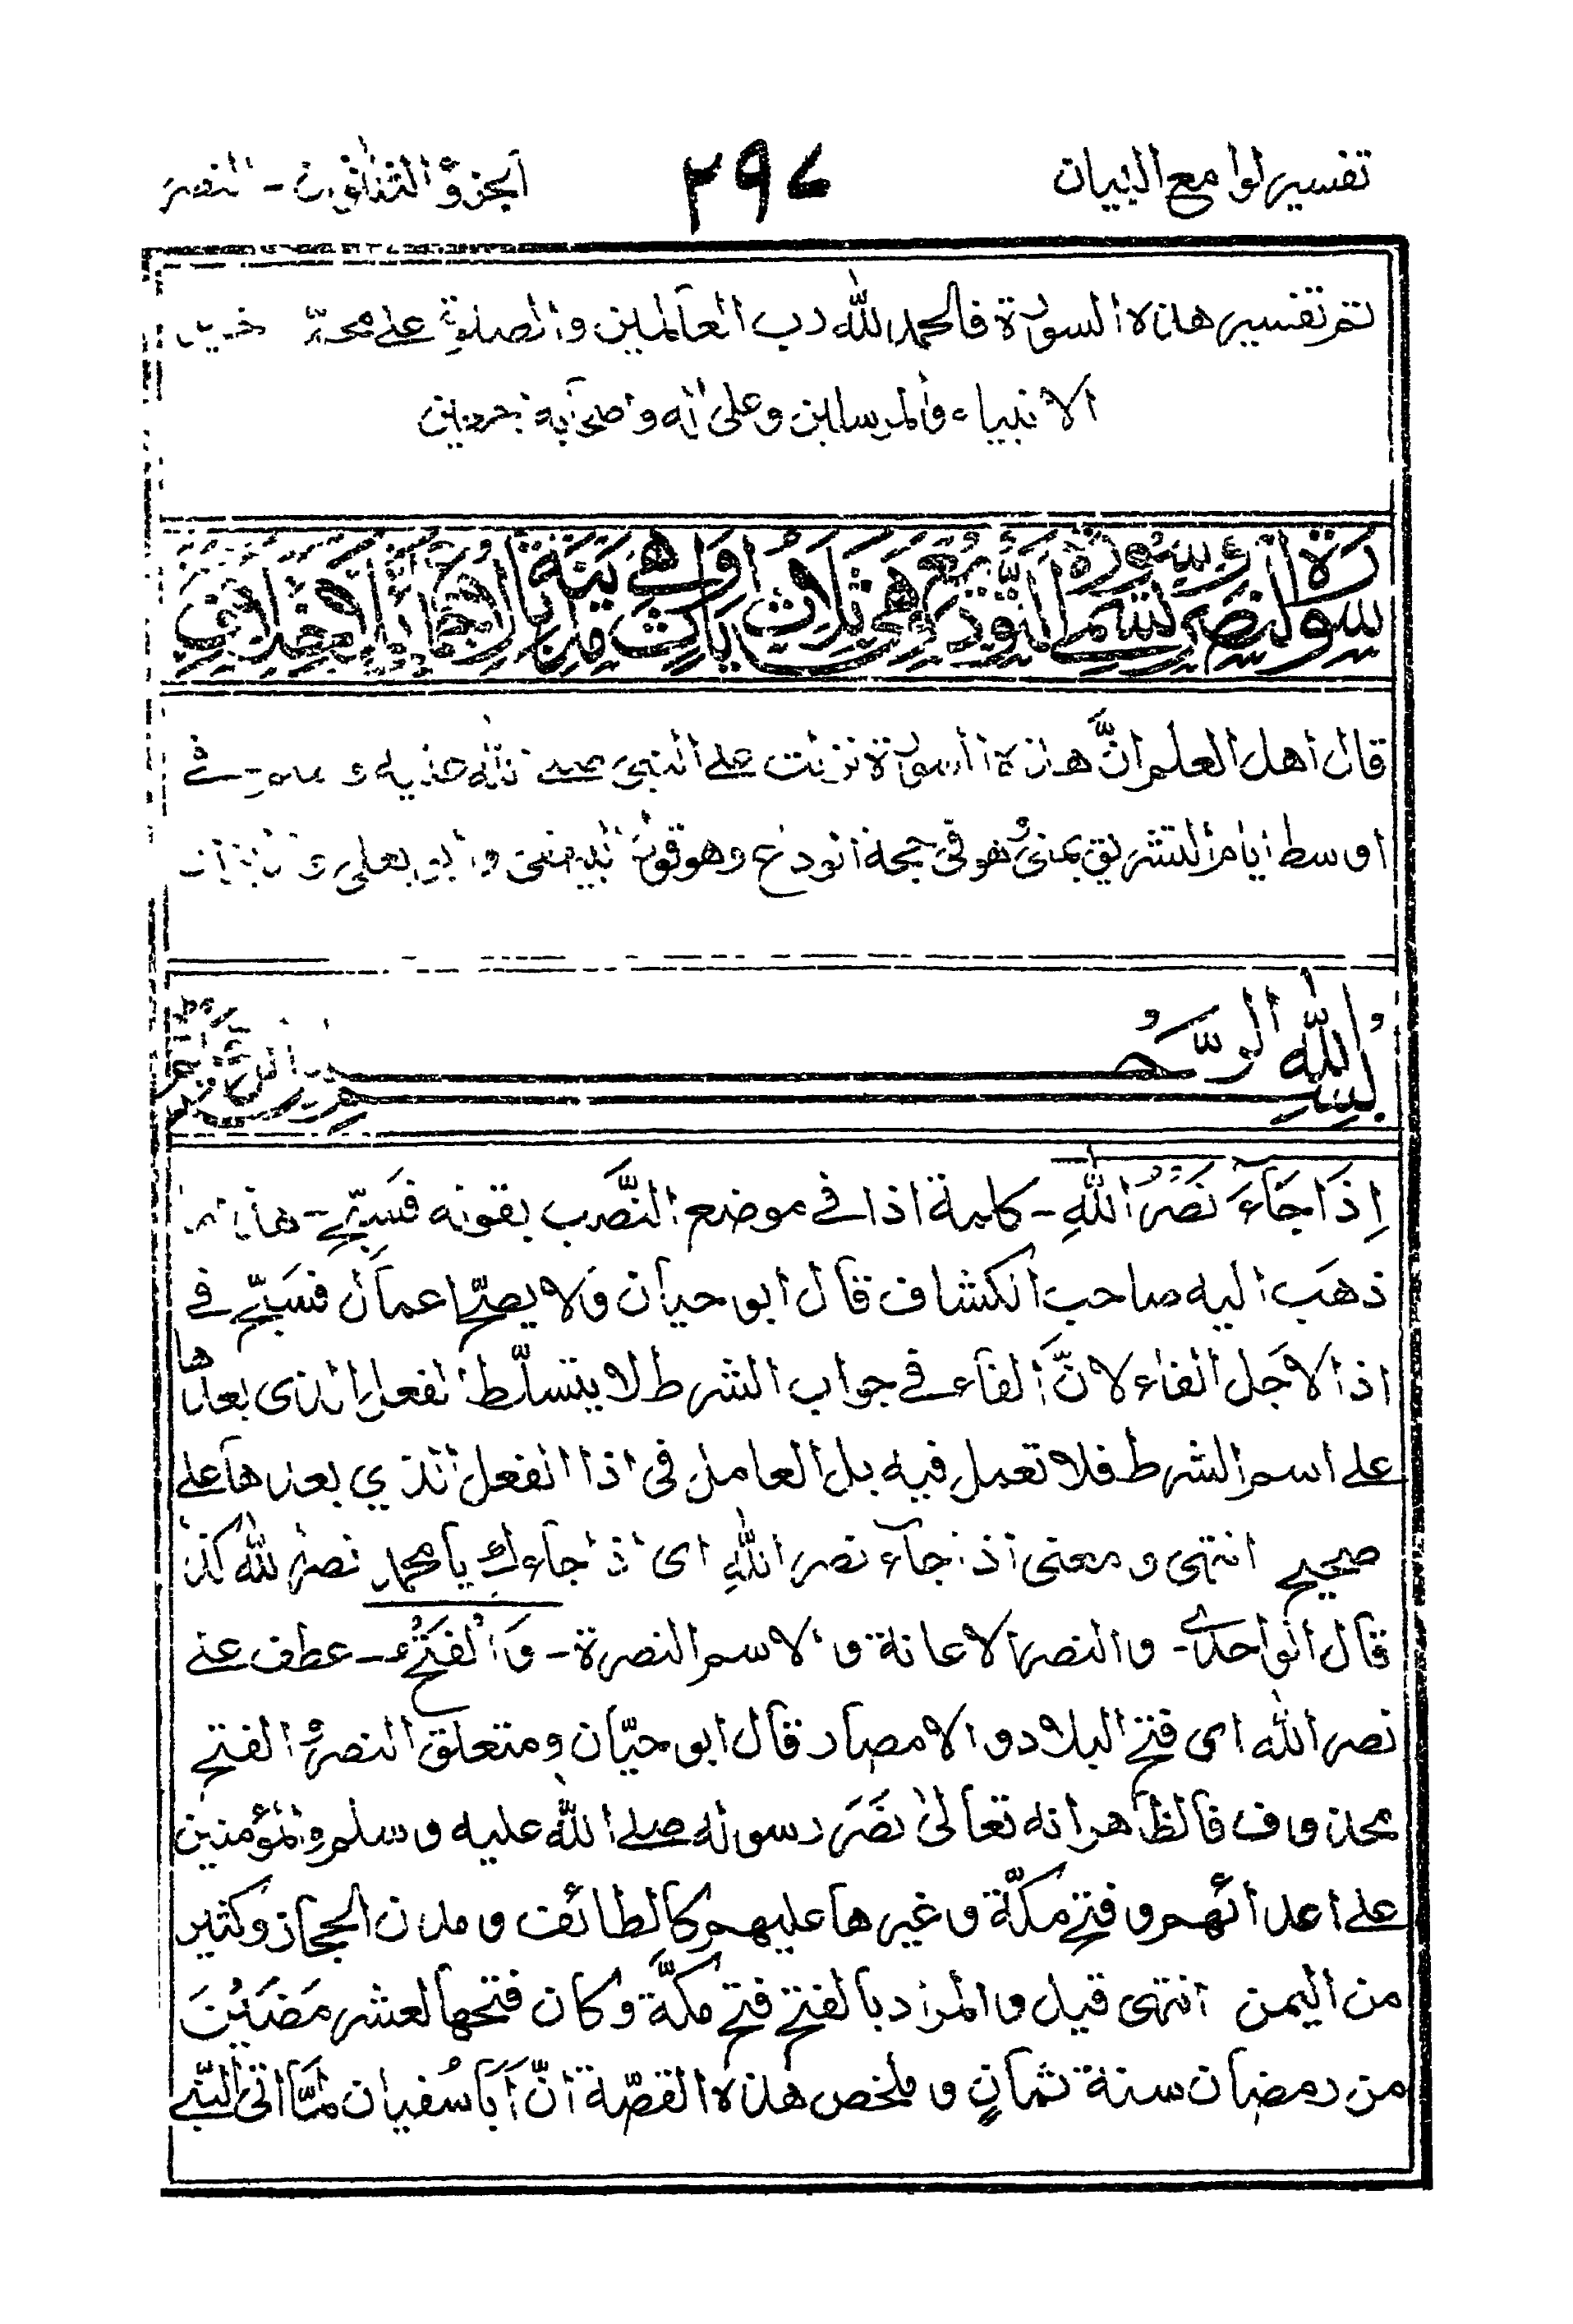 تفسير لوامع البيان
٢٩٧
الجزؤ الثلاثون - النصر
تم تفسير هذه السورة فالحمد لله رب العالمين والصلوة على محمد خير
الانبياء والمرسلين وعلى اله واصحابه اجمعين
سورة النصر سورة التوديع وهي ثلاث ايات وهي مدنية بالاجماع
قال اهل العلم انَّ هذه السورة نزلت على النبي صلى الله عليه و سلم في
اوسط ايام التشريق بمنىٰ وهو في حجة الوداع وهو قول البيهقي وابو يعلى و
بسم الله الرحمن الرحيم
اِذَا جَآءَ نَصْرُ اللّٰهِ - كلمة اذا في موضع النَّصب بقوله فَسَبِّح - هذا ما
ذهَب اليه صاحب الكشاف قال ابو حيان ولا يصحّ اعمال فسَبِّح في
اذا لاجَل الفاء لانَّ الفاء في جواب الشرط لا يتسلّط الفعل الذى بعدها
على اسم الشرط فلا تعمل فيه بل العامل في اذا الفعل الذي بعدها على
صحيح انتهى و معنى اذا جآء نصر اللهِ اى اذا جاءك يا محمد نصر الله كذا
قال الواحدي - والنصر الاعانة و الاسم النصرة - وَالْفَتْحُ - عطف على
نصر الله اى فتح البلاد و الامصار قال ابو حيّان و متعلق النصر و الفتح
محذوف فالظاهر انه تعالىٰ نصَرَ رسوله صلے الله عليه و سلم والمؤمنين
على اعدائهم و فتح مكّة و غيرها عليهم كالطائف و مدن الحجاز و كثير
من اليمن انتهى قيل و المراد بالفتح فتح مكَّة و كان فتحها لعشر مضَيْنَ
من رمضان سنة ثمانٍ و ملخص هذه القصّة انّ اَبَا سُفيان لمّا اتى النبي